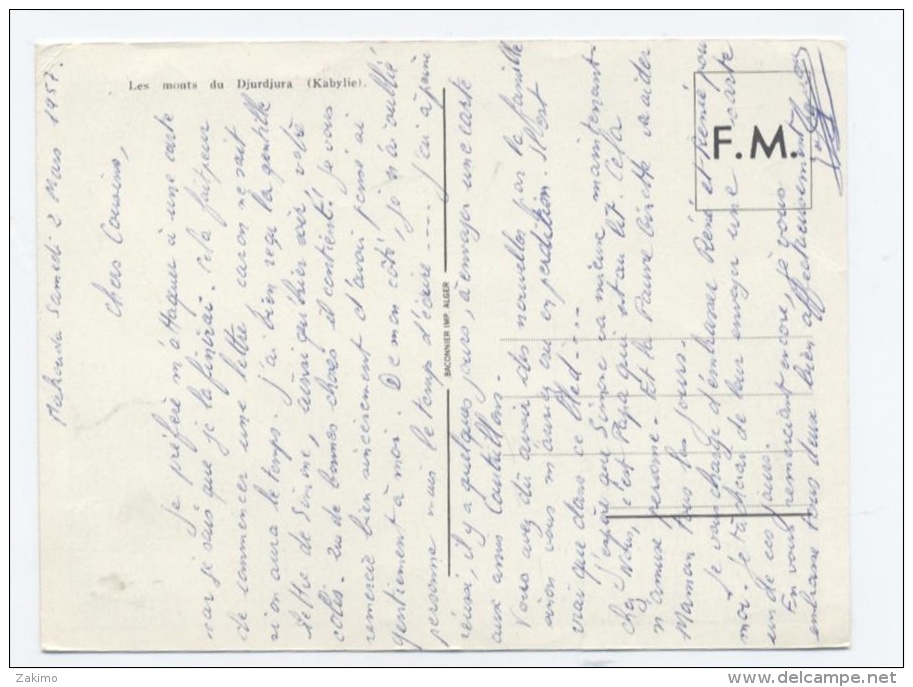 Les monts du Djurdjura (Kabylie).
F. M.
BACONNIER IMP. ALGER
Samedi 2 Mars 1957.
Chers Cousins,
Je préfère m'attaquer à une carte
car je sais que je la finirai. cela fait peur
de commencer une lettre car on ne sait
si on aura le temps. J'ai bien reçu la gentille
lettre de Simone, ainsi qu'hier soir votre
colis. Que de bonnes choses il contient! je vous
remercie bien sincèrement d'avoir pensé ainsi
gentiement à moi. De mon côté, je n'ai oublié
personne mais le temps d'écrire.... j'ai à peine
réussi, il y a quelques jours, à envoyer une carte
aux amis
Vous avez dû avoir des nouvelles par la famille
avion vous m'aviez cru en perdition. Il est
vrai que dans ce bled....
J'espère que Simone va mieux maintenant.
Chez Nous, c'est Papa qui est au lit. Cela
n'amuse personne. Et la Pauvre doit aider
Maman tous les jours.
Je vous charge d'embrasser René et Renée pour
moi. Je tâcherai de leur envoyer une carte
un de ces jours.
En vous remerciant encore, je vous
embrasse tous deux bien affectueusement.
Zakimo
delcampe.net